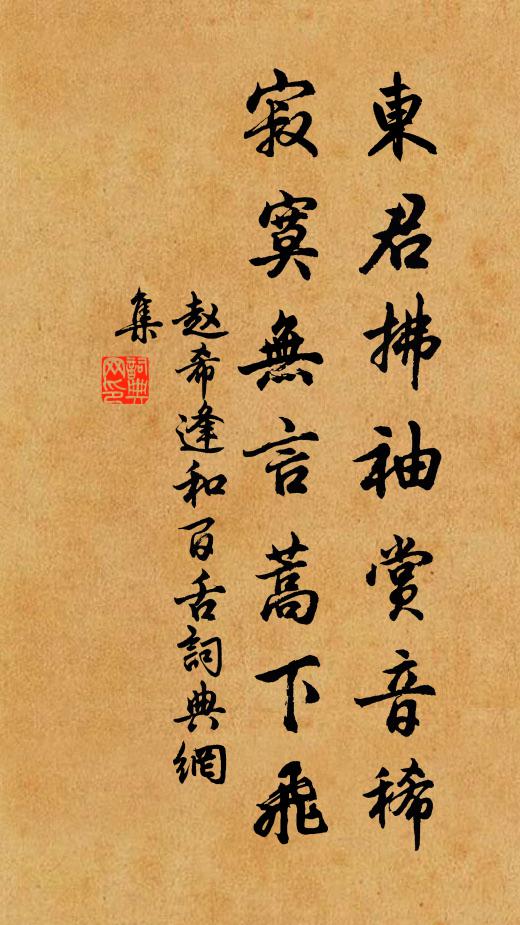 東君拂袖賞音稀
寂寞無言蒿下飛
赵希逢和百舌詞典網
集
詞典网印